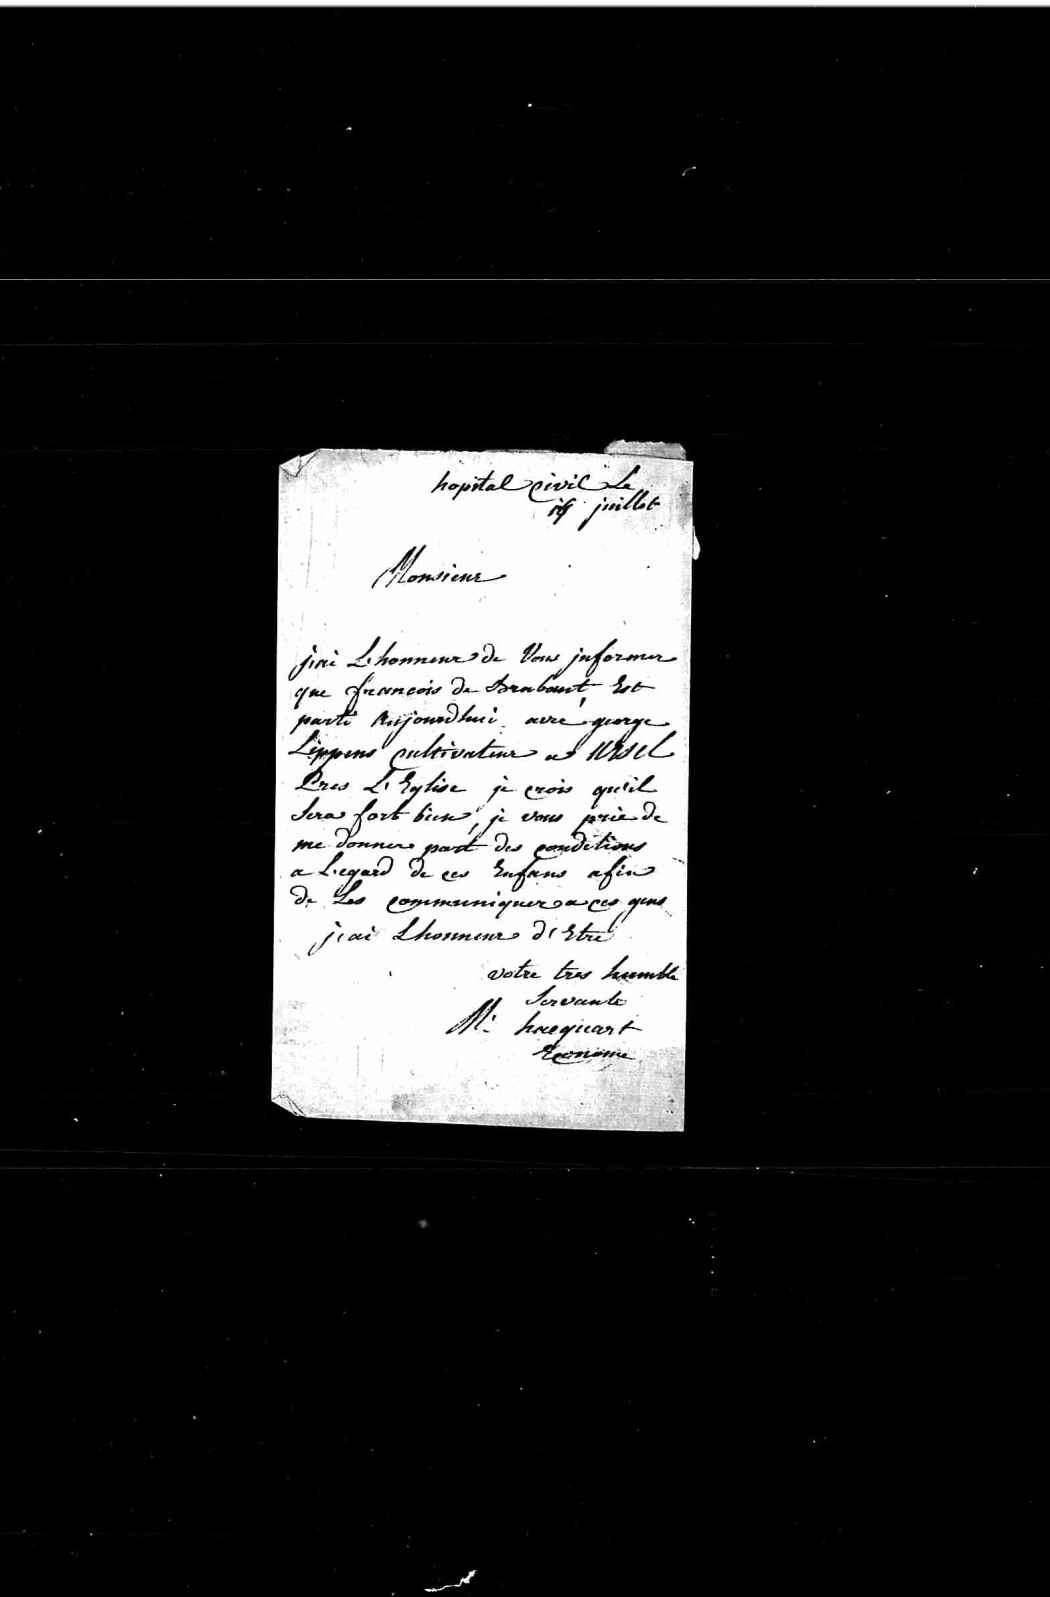 hopital civil Le
juillet
Monsieur
j'ai L'honneur de Vous jnformer
que francois de Brabant, Est
parti Aujourdhui avec george
Lippens cultivateur a URSEL
Pres L'Eglise je crois qu'il
Sera fort bien, je vous prie de
me donner part des conditions
a L'egard de ces Enfans afin
de Les communiquer a ces gens
j'ai Lhonneur d'Etre
votre tres humble
Servante
M. hacquart
Econome